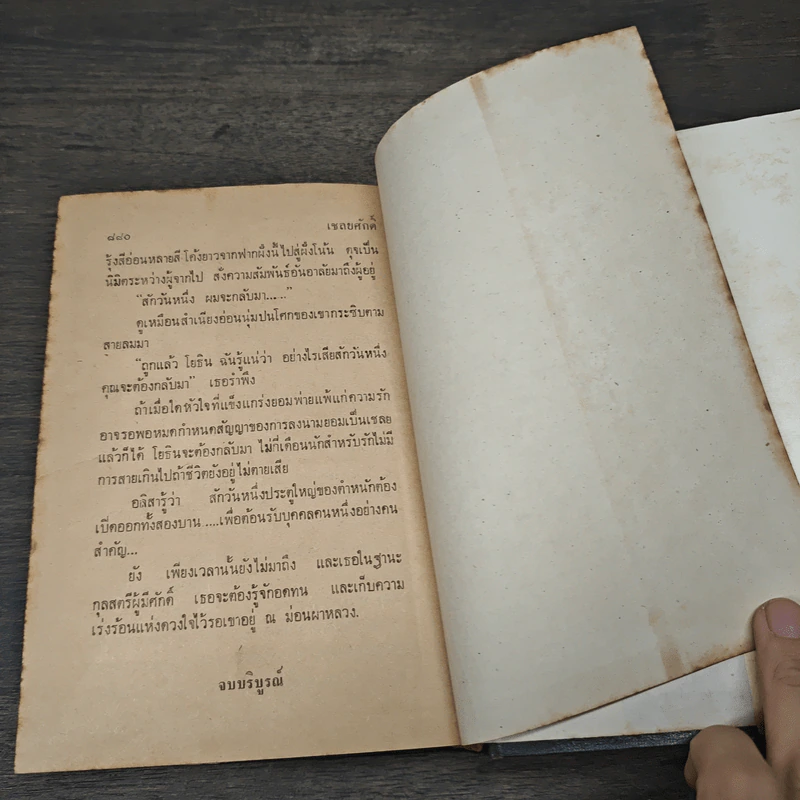 ๘๘๐
เชลยศักดิ์
รุ้งสีอ่อนหลายสี โค้งยาวจากฟากฝั่งนี้ไปสู่ฝั่งโน้น ดุจเป็น
นิมิตระหว่างผู้จากไป สั่งความสัมพันธ์อันอาลัยมาถึงผู้อยู่
“สักวันหนึ่ง ผมจะกลับมา.....”
ดูเหมือนสำเนียงอ่อนนุ่มปนโศกของเขากระซิบตาม
สายลมมา
“ถูกแล้ว โยธิน ฉันรู้แน่ว่า อย่างไรเสียสักวันหนึ่ง
คุณจะต้องกลับมา” เธอรำพึง
ถ้าเมื่อใดหัวใจที่แข็งแกร่งยอมพ่ายแพ้แก่ความรัก
อาจรอพอหมดกำหนดสัญญาของการลงนามยอมเป็นเชลย
แล้วก็ได้ โยธินจะต้องกลับมา ไม่กี่เดือนนักสำหรับรักไม่มี
การสายเกินไปถ้าชีวิตยังอยู่ไม่ตายเสีย
อลิสารู้ว่า สักวันหนึ่งประตูใหญ่ของตำหนักต้อง
เปิดออกทั้งสองบาน ....เพื่อต้อนรับบุคคลคนหนึ่งอย่างคน
สำคัญ...
ยัง เพียงเวลานั้นยังไม่มาถึง และเธอในฐานะ
กุลสตรีผู้มีศักดิ์ เธอจะต้องรู้จักอดทน และเก็บความ
เร่งร้อนแห่งดวงใจไว้รอเขาอยู่ ณ ม่อนผาหลวง.
จบบริบูรณ์